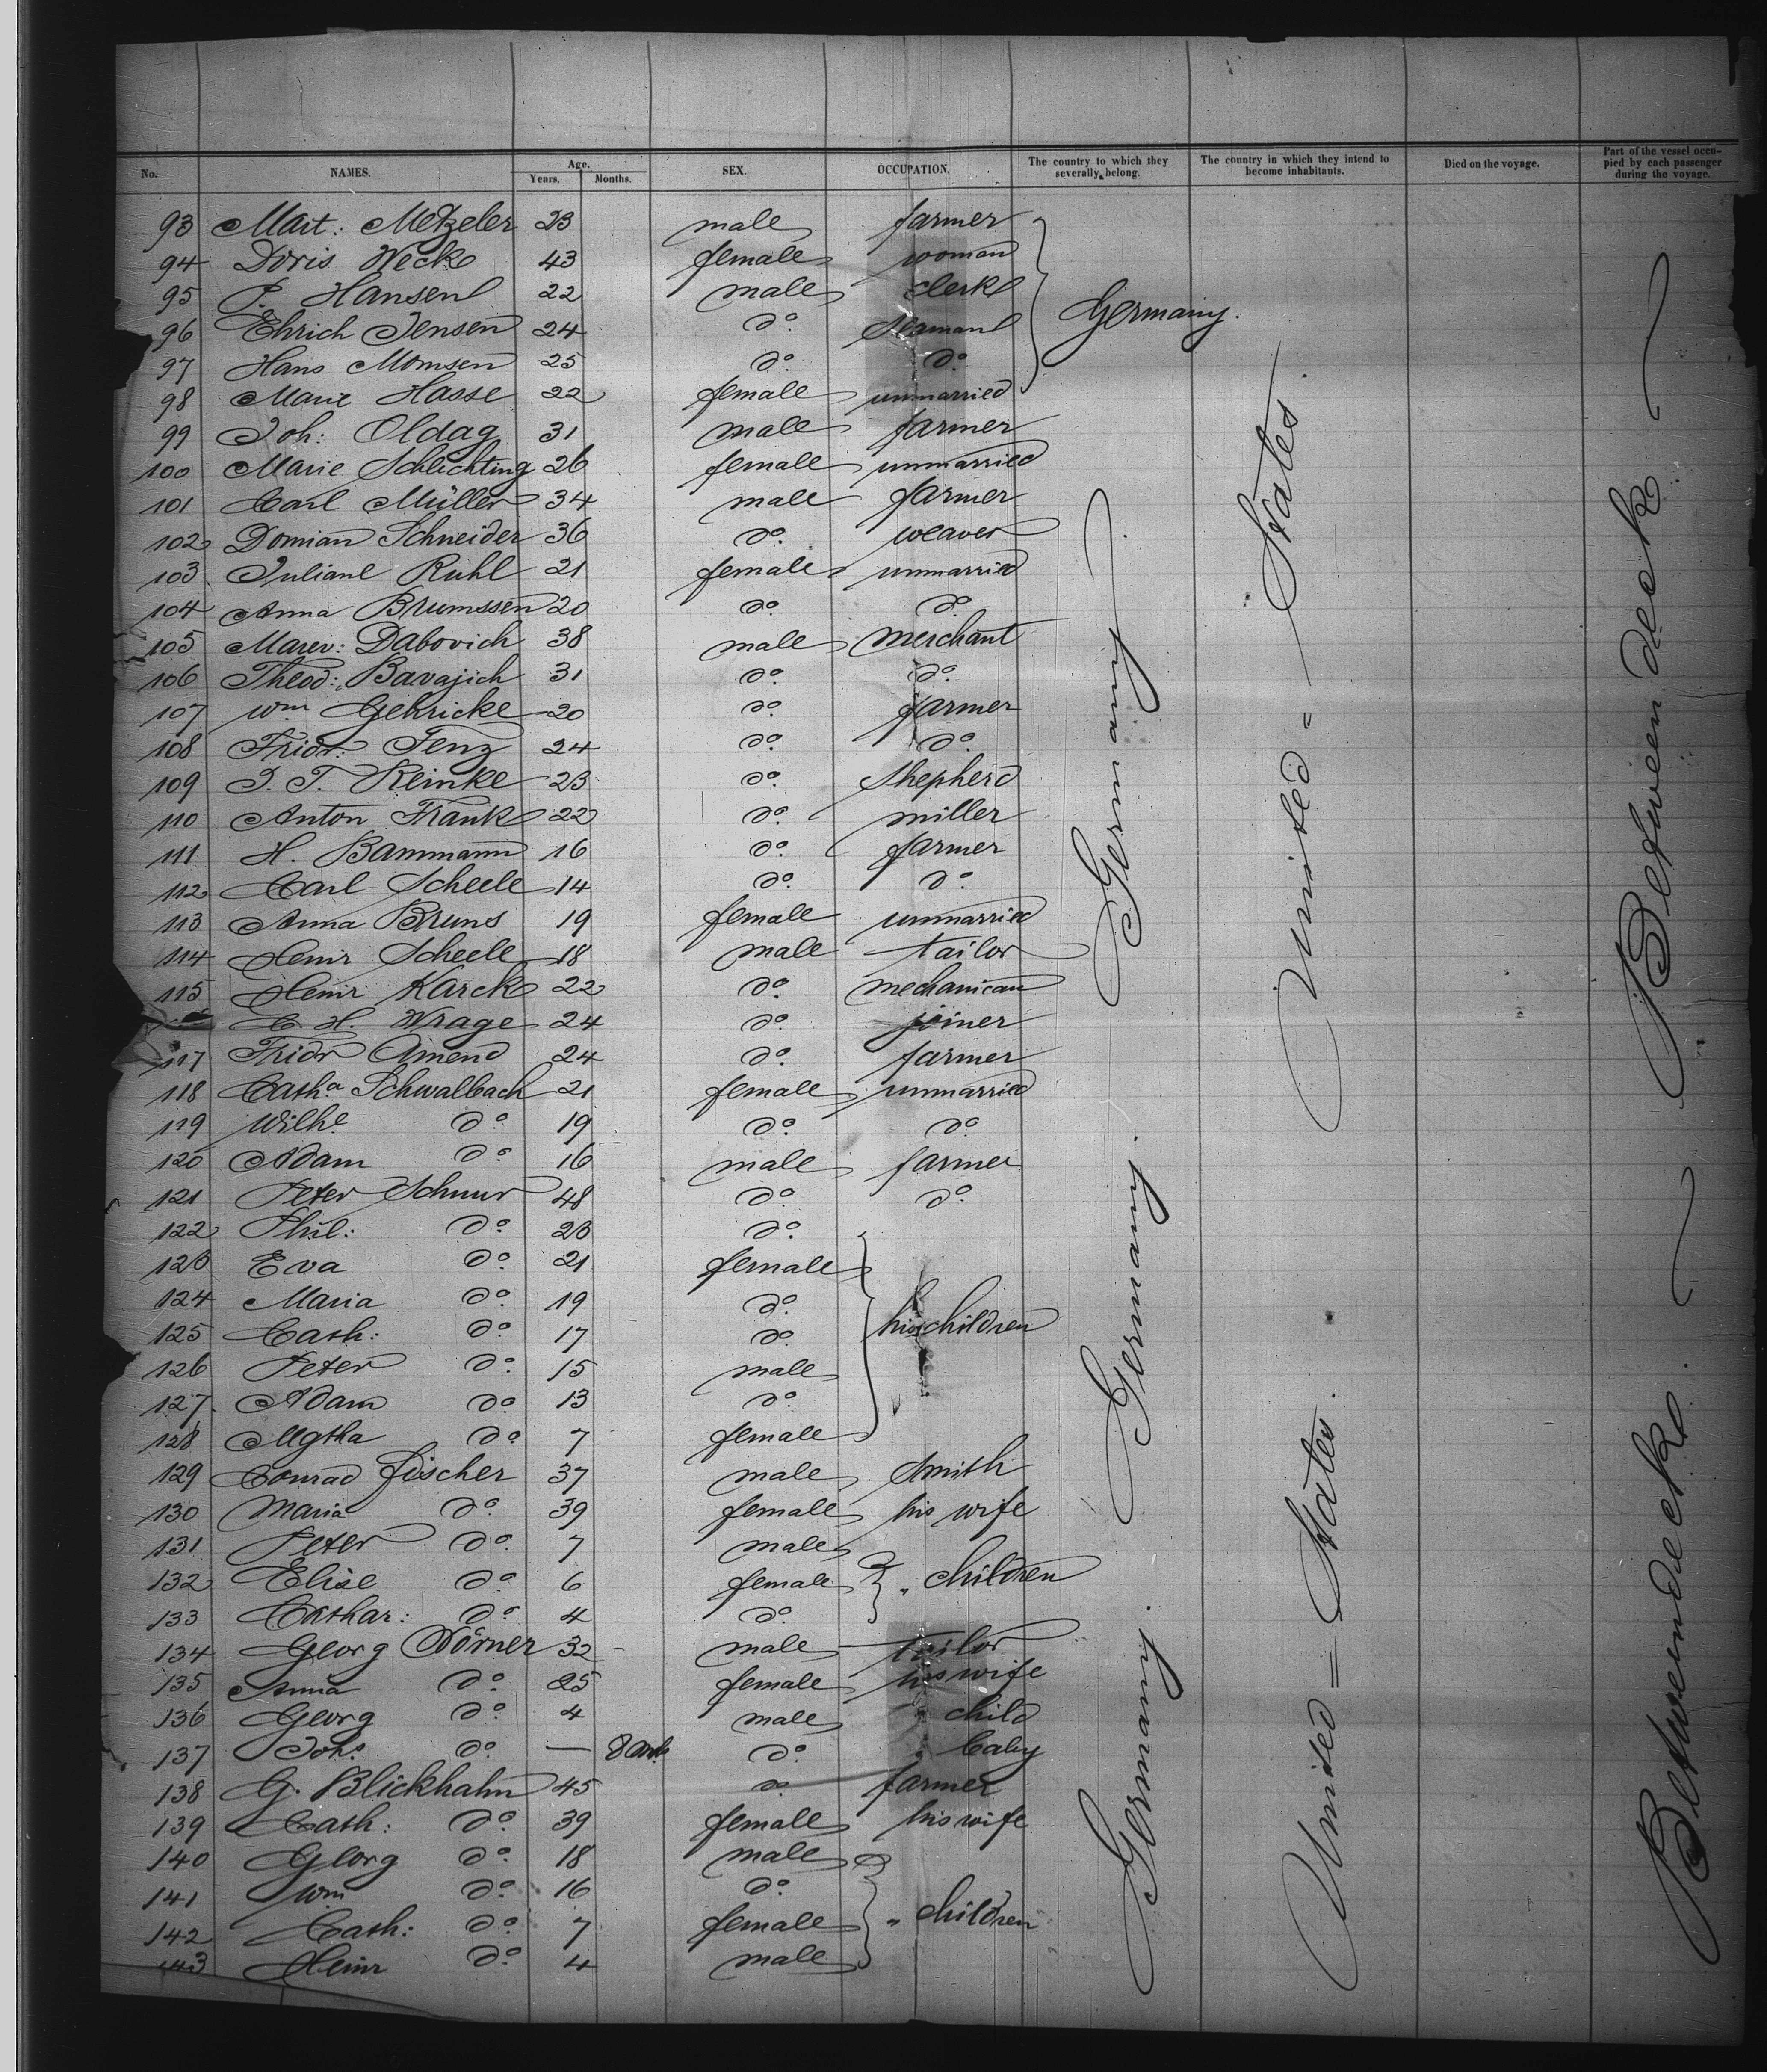 No. NAMES. Age. Years. Months. SEX. OCCUPATION. The country to which they severally belong. The country in which they intend to become inhabitants. Died on the voyage. Part of the vessel occupied by each passenger during the voyage.
93 Mart: Metzeler 23 male farmer
94 Doris Weck 43 female woman
95 P. Hansen 22 male clerk
96 Ehrich Jensen 24 do. seaman Germany.
97 Hans Momsen 25 do. do.
98 Marie Hasse 22 female unmarried
99 Joh: Oldag 31 male farmer
100 Marie Schlichting 26 female unmarried
101 Carl Müller 34 male farmer
102 Domian Schneider 36 do. weaver
103 Juliane Ruhl 21 female unmarried
104 Anna Brumssen 20 do. do.
105 Marev: Dabovich 38 male merchant
106 Theod: Bavajich 31 do. do.
107 Wm Gehricke 20 do. farmer
108 Fridr: Fenz 24 do. do.
109 J. T. Reinke 23 do. Shepherd
110 Anton Frank 22 do. miller
111 H. Bammann 16 do. farmer
112 Carl Scheele 14 do. do.
113 Anna Bruns 19 female unmarried
114 Heinr Scheele 18 male tailor
115 Heinr Karck 22 do. mechanican
C. H. Wrage 24 do. joiner
117 Fridr Amend 24 do. farmer
118 Catha Schwalbach 21 female unmarried
119 Wilhe do. 19 do. do.
120 Adam do. 16 male farmer
121 Peter Schnur 48 do. do.
122 Phil: do. 23 do.
123 Eva do. 21 female
124 Maria do. 19 do.
125 Cath: do. 17 do. his children
126 Peter do. 15 male
127 Adam do. 13 do.
128 Mgtha do. 7 female
129 Conrad Fischer 37 male Smith
130 Maria do. 39 female his wife
131 Peter do. 7 male
132 Elise do. 6 female " children
133 Cathar: do. 4 do.
134 Georg Dörner 32 male tailor
135 Anna do. 25 female his wife
136 Georg do. 4 male child
137 Johs do. — 8 mth do. baby
138 G. Blickhahn 45 do. farmer
139 Cath: do. 39 female his wife
140 Georg do. 18 male
141 Wm do. 16 do.
142 Cath: do. 7 female " children
143 Heinr do. 4 male
Germany.
Germany.
Germany.
United = States.
United = States.
Betweendeck
Betweendeck.